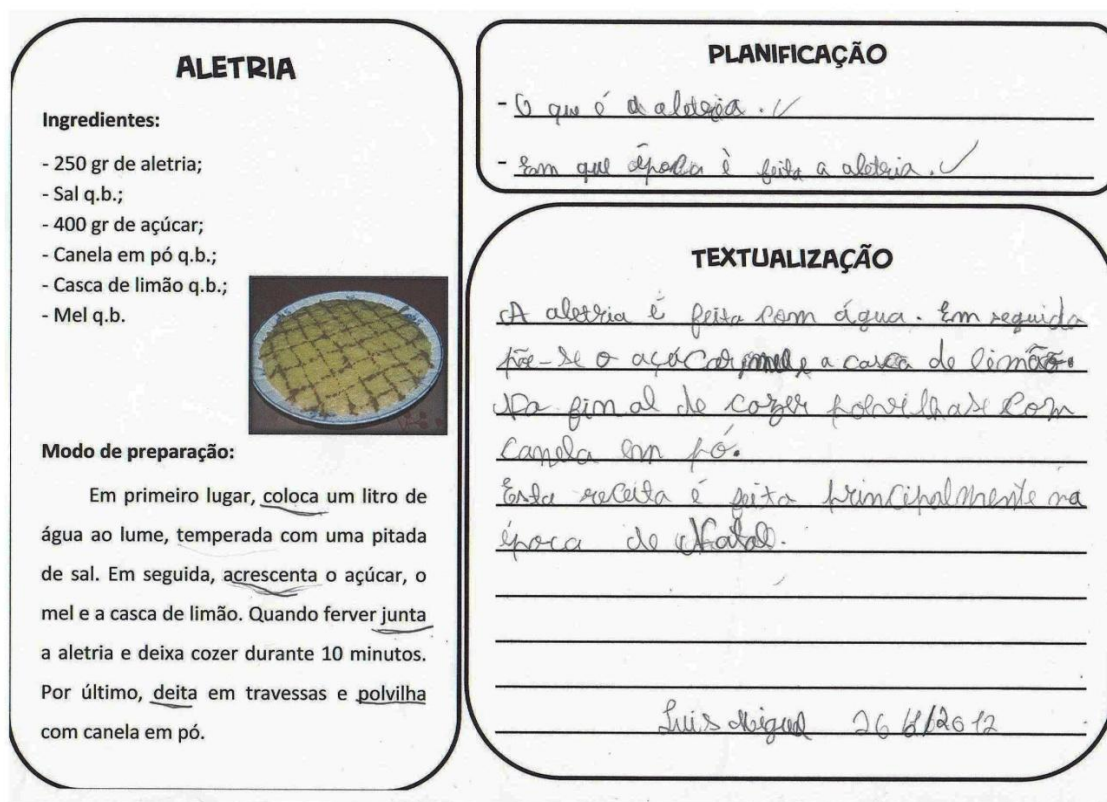 ALETRIA
Ingredientes:
- 250 gr de aletria;
- Sal q.b.;
- 400 gr de açúcar;
- Canela em pó q.b.;
- Casca de limão q.b.;
- Mel q.b.
Modo de preparação:
Em primeiro lugar, coloca um litro de
água ao lume, temperada com uma pitada
de sal. Em seguida, acrescenta o açúcar, o
mel e a casca de limão. Quando ferver junta
a aletria e deixa cozer durante 10 minutos.
Por último, deita em travessas e polvilha
com canela em pó.
PLANIFICAÇÃO
- O que é a aletria.
- Em que época è feita a aletria.
TEXTUALIZAÇÃO
A aletria é feita com água. Em seguida
põe-se o açúcar, mel e a casca de limão.
No final de cozer polvilhase com
canela em pó.
Esta receita é feita principalmente na
época de Natal.
Luis Miguel 26 2012